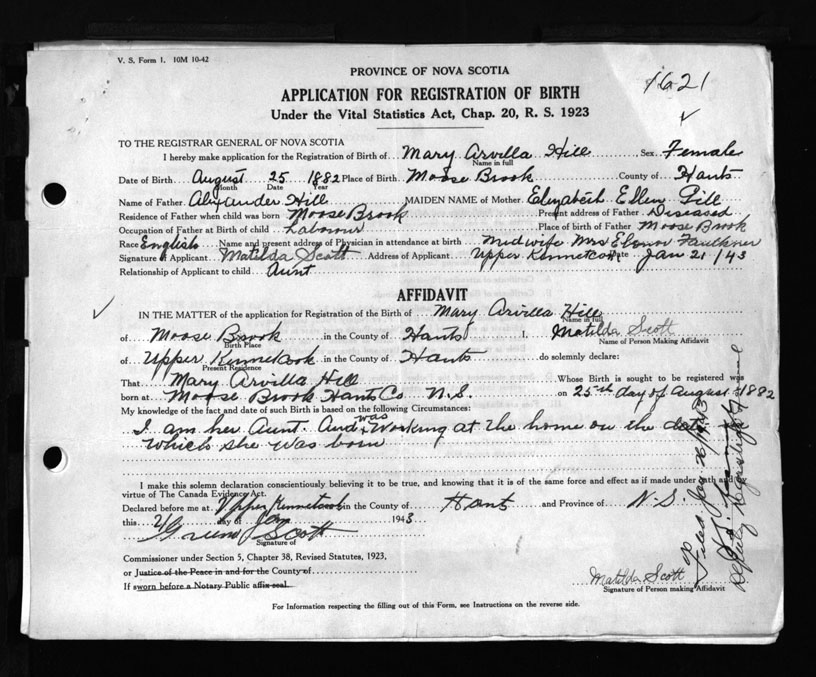 V. S. Form 1. 10M 10-42
1621
PROVINCE OF NOVA SCOTIA
APPLICATION FOR REGISTRATION OF BIRTH
Under the Vital Statistics Act, Chap. 20, R. S. 1923
TO THE REGISTRAR GENERAL OF NOVA SCOTIA
I hereby make application for the Registration of Birth of Mary Arvilla Hill Sex Female
Name in full
Date of Birth August 25 1882 Place of Birth Moose Brook County of Hants
Month Date Year
Name of Father Alexander Hill MAIDEN NAME of Mother Elizabeth Ellen Gill
Residence of Father when child was born Moose Brook Present address of Father Diseased
Occupation of Father at Birth of child Labourer Place of birth of Father Moose Brook
Race English Name and present address of Physician in attendance at birth Midwife Mrs Elonor Faulkner
Signature of Applicant Matilda Scott Address of Applicant Upper Kennetcook Date Jan 21/43
Relationship of Applicant to child Aunt
AFFIDAVIT
IN THE MATTER of the application for Registration of the Birth of Mary Arvilla Hill
Name in full
of Moose Brook in the County of Hants I, Matilda Scott
Birth Place Name of Person Making Affidavit
of Upper Kennetcook in the County of Hants do solemnly declare:
Present Residence
That Mary Arvilla Hill Whose Birth is sought to be registered was
born at Moose Brook Hants Co N.S. on 25th day of August 1882
My knowledge of the fact and date of such Birth is based on the following Circumstances:
I am her Aunt. And was Working at the home on the date
Which she was born
I make this solemn declaration conscientiously believing it to be true, and knowing that it is of the same force and effect as if made under oath and
virtue of The Canada Evidence Act.
Declared before me at Upper Kennetcook in the County of Hants and Province of N.S.
this 21 day of Jan 1943
Scott
Signature of
Commissioner under Section 5, Chapter 38, Revised Statutes, 1923,
or Justice of the Peace in and for the County of
If sworn before a Notary Public affix seal.
Matilda Scott
Signature of Person making Affidavit
For Information respecting the filling out of this Form, see Instructions on the reverse side.
Filed Jan 26/1943
Deputy Registrar General